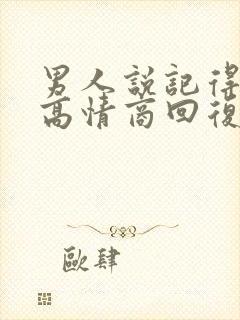 男人説記得
高情商回復
歐肆